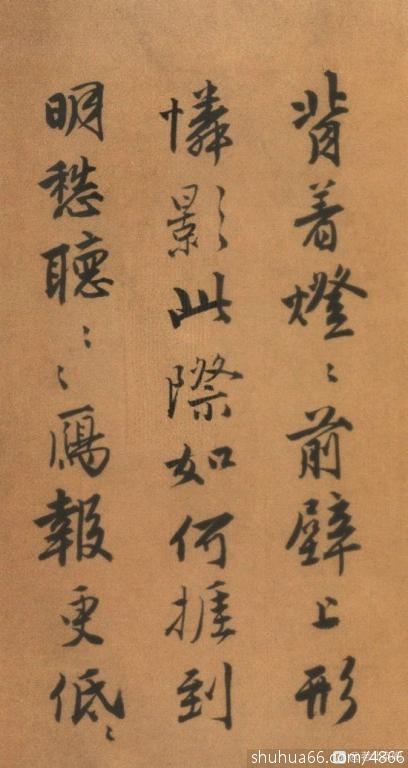 背着燈〻前壁上形
憐影此際如何捱到
明愁聽〻〻鴈報更低〻
shuhua66.com/4866